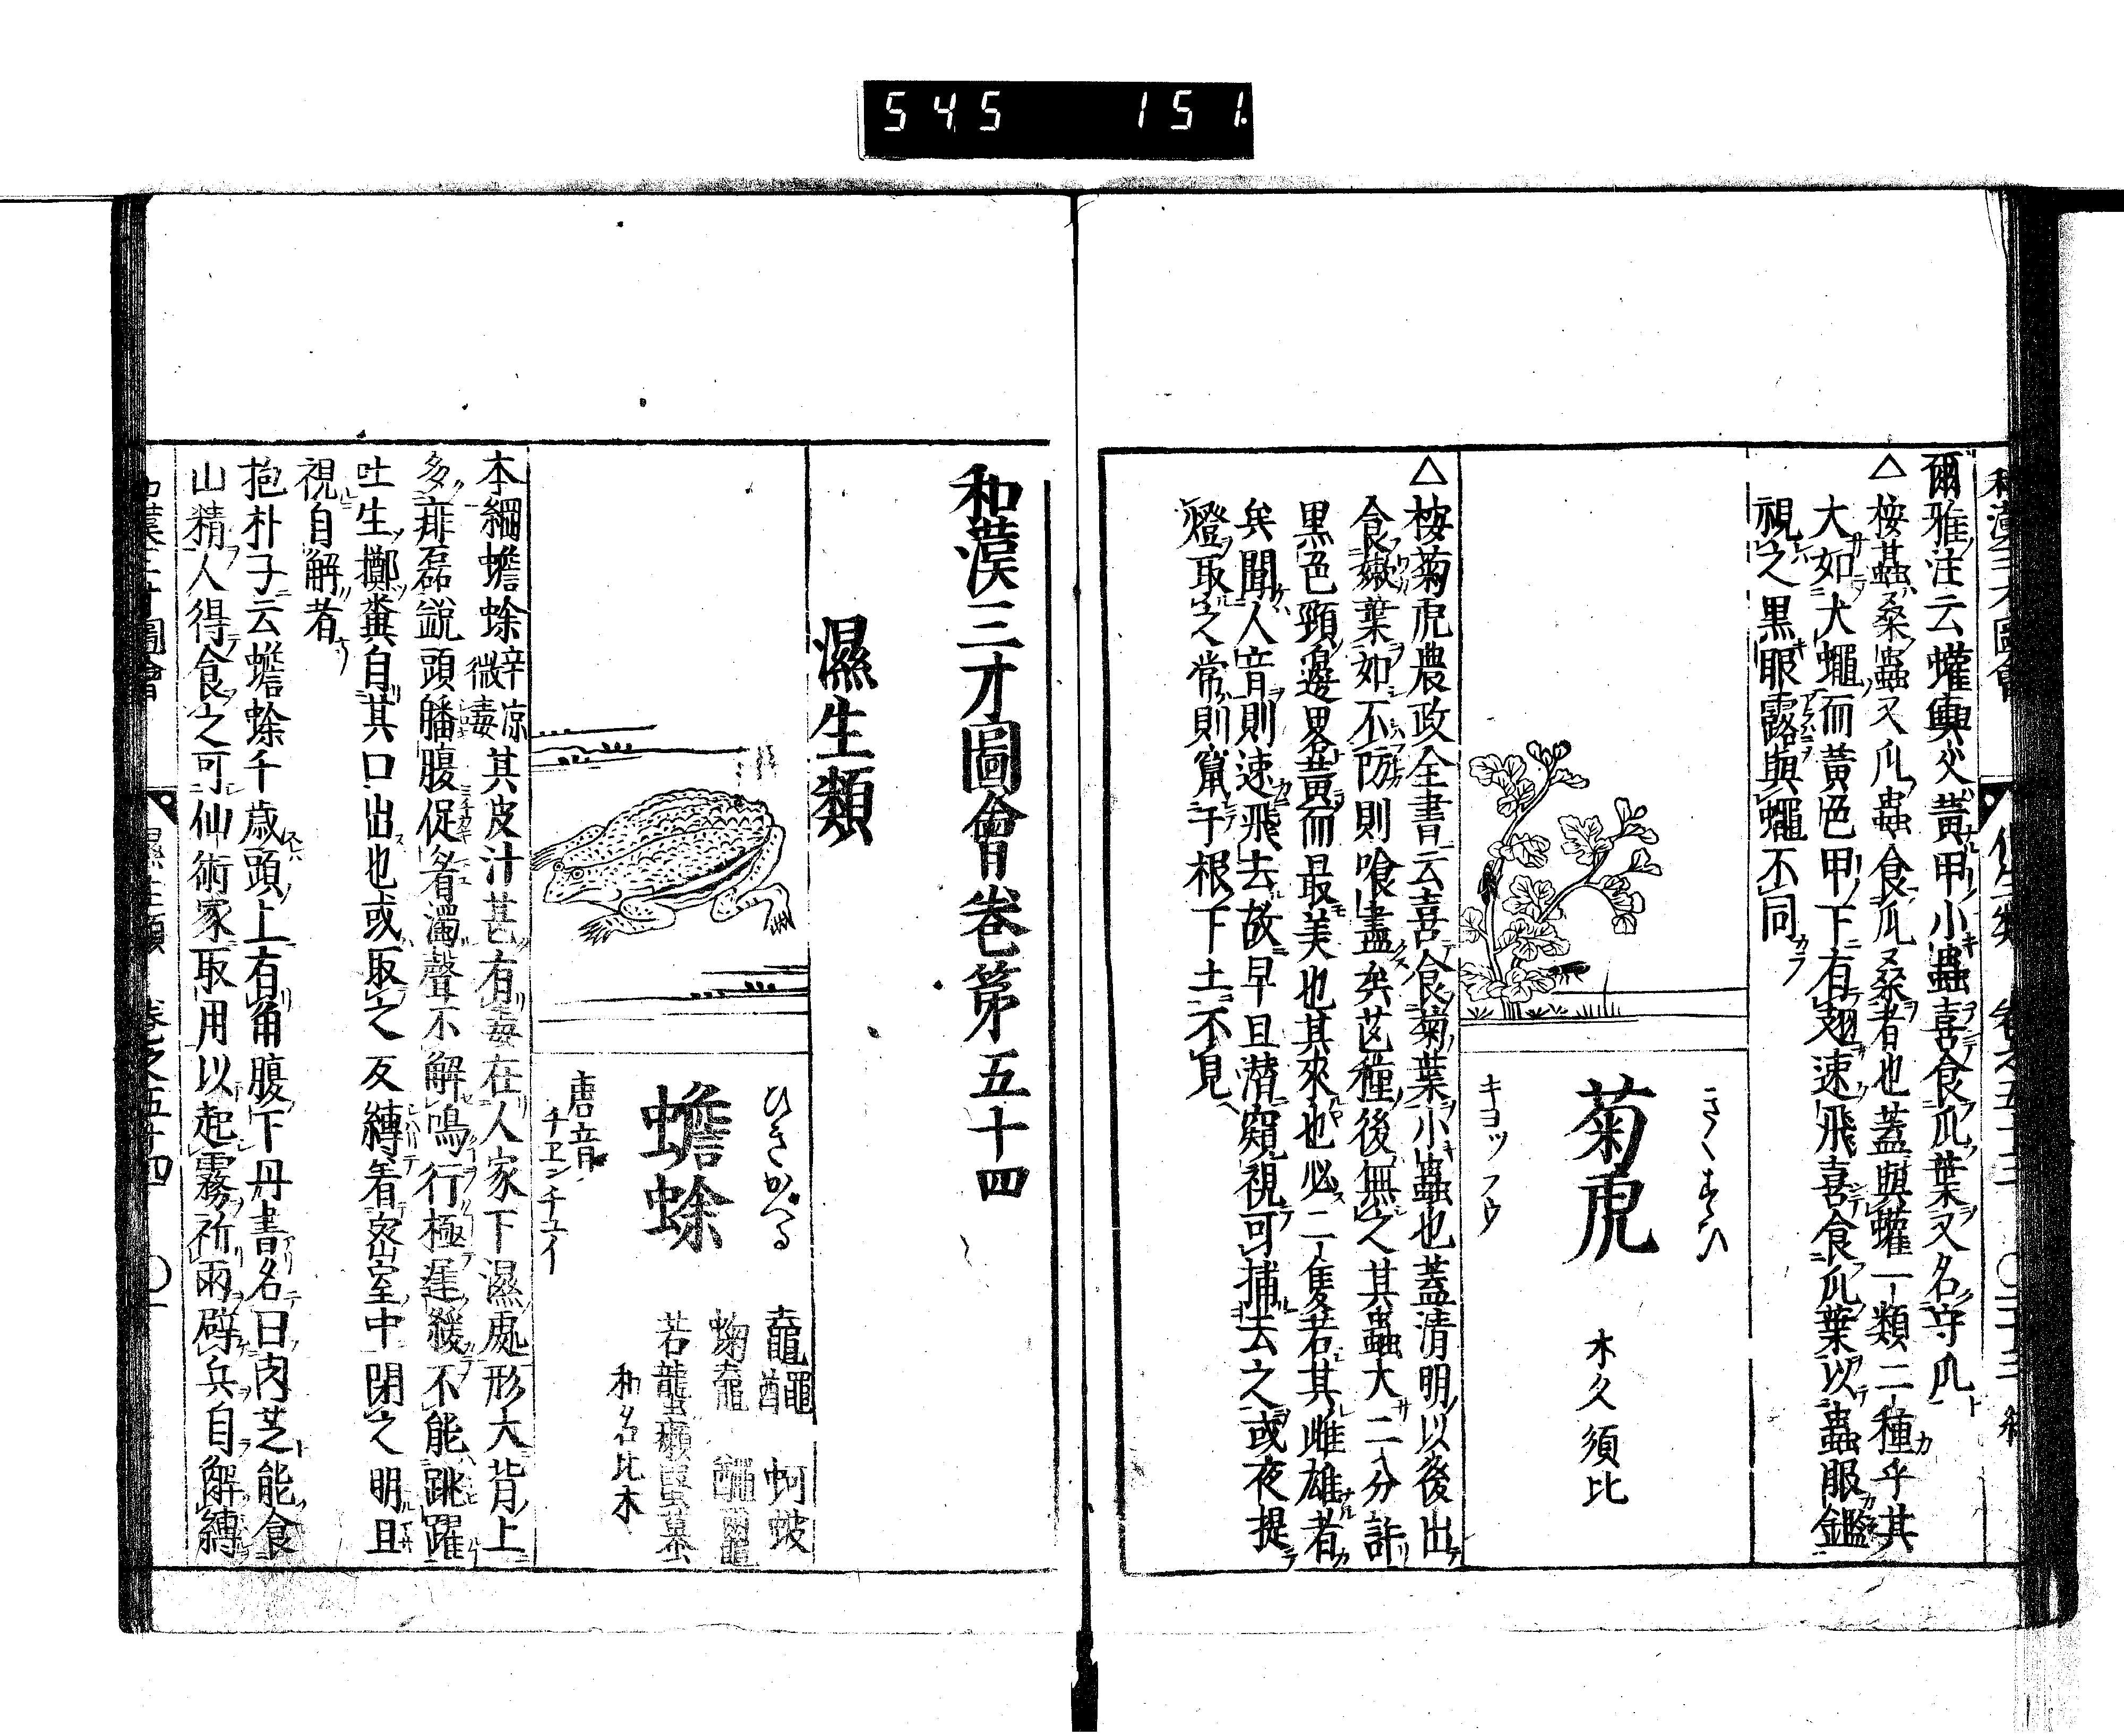 545 151
爾雅注云蠸輿父黃甲小蟲喜食瓜葉又名守瓜
△桉其蟲桑蟲又瓜蟲食瓜桑者也蓋與蠸一類二種乎其
大如犬蠅而黃色甲下有翅速飛喜食瓜葉以蟲眼鑑
視之黒眼露與蠅不同
きくすひ
菊虎
キヨッフウ
木久須比
△桉菊虎農政全書云喜食菊葉小蟲也蓋清明以後出
食嫩葉如不防則喰盡矣芒種後無之其蟲大二分許
黒色頸邊畧黃而最美也其來也必二隻若其雌雄者
矣聞人音則速飛去故早旦潜窺視可捕去之或夜提
燈取之常則竄于根下土不見
和漢三才圖會卷第五十四
濕生類
ひきがへる
蟾蜍
唐音
チヱンチユイ
和名比木
本綱蟾蜍辛凉微毒其皮汁甚有毒在人家下濕處形大背上
多痱磊鋭頭皤腹促眉濁聲不解鳴行極遲緩不能跳躍
吐生擲糞自其口出也或取之反縛着密室中閉之明且
視自解者
抱朴子云蟾蜍千歳頭上有角腹下丹書名曰肉芝能食
山精人得食之可仙術家取用以起霧祈雨辟兵自解縛